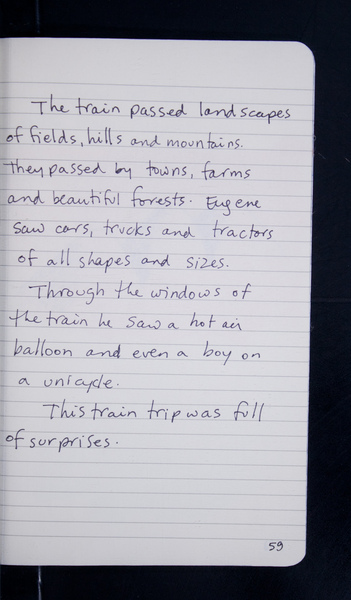 The train passed landscapes
of fields, hills and mountains.
They passed by towns, farms
and beautiful forests. Eugene
saw cars, trucks and tractors
of all shapes and sizes.
Through the windows of
the train he saw a hot air
balloon and even a boy on
a unicycle.
This train trip was full
of surprises.
59